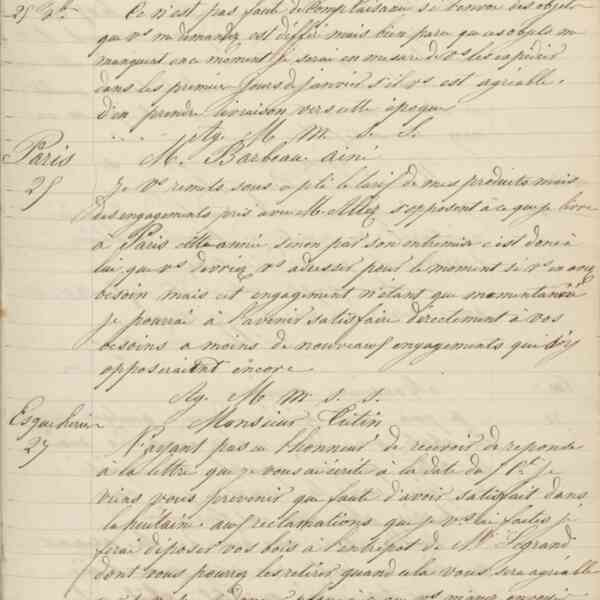 25 Xbre Ce n'est pas faute de complaisance si l'envoi des objets
que vs me demandez est différé mais bien parce que ces objets me
manquent en ce moment je serai en mesure de vs les expédier
dans les premiers jours de janvier s'il vs est agréable
d'en prendre livraison vers cette époque
Ag. M m s. S.
Paris M. Barbeau ainé
25 Je vs remets sous ce pli le tarif de mes produits mais
des engagements pris avec M. s'opposent à ce que je livre
à Paris cette année sinon par son entremise c'est donc à
lui que vs devriez vs adresser pour le moment si vs en avez
besoin mais cet engagement n'étant que momentanné
je pourrai à l'avenir satisfaire directement à vos
besoins a moins de nouveaux engagements qui s'y
opposeraient encore
Ag. M m s. s.
Esqueherie Monsieur Tutin
27 N'ayant pas eu l'honneur de recevoir de reponse
à la lettre que je vous ai écrite à la date du je
viens vous prévenir que faute d'avoir satisfait dans
la huitaine aux reclamations que je vs ai faites je
ferai déposer vos bois à l'entrepot de Mr Legrand
dont vous pourrez les retirer quand cela vous sera agréable